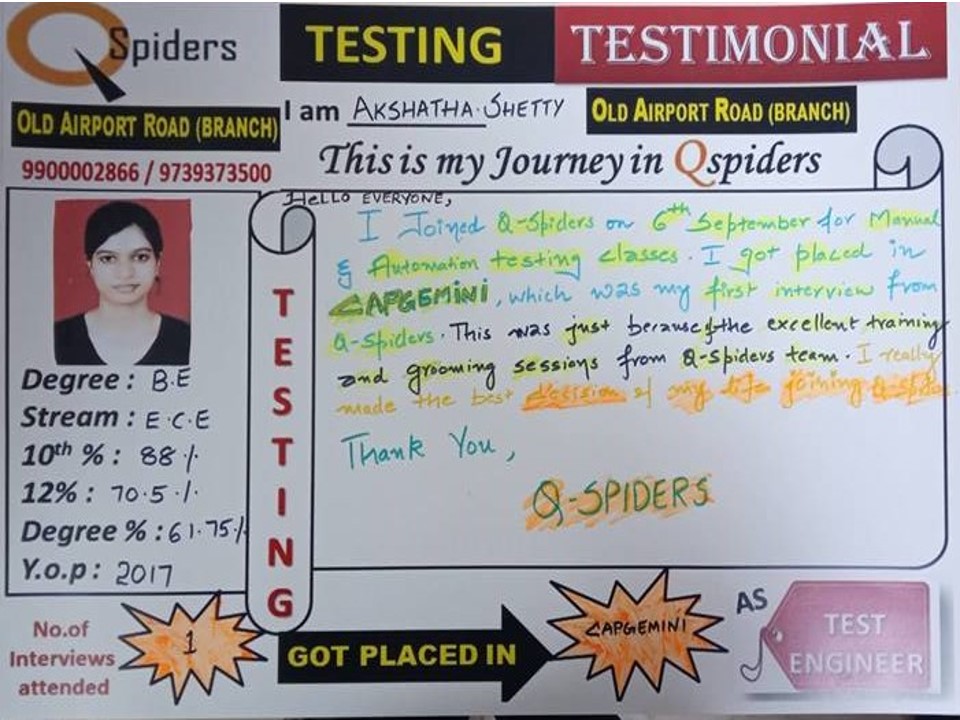 QSpiders
TESTING TESTIMONIAL
OLD AIRPORT ROAD (BRANCH)
I am AKSHATHA·SHETTY
OLD AIRPORT ROAD (BRANCH)
9900002866 / 9739373500
This is my Journey in Qspiders
HELLO EVERYONE,
I Joined Q-Spiders on 6th September for Manual
& Automation testing classes. I got placed in
CAPGEMINI, which was my first interview from
Q-Spiders. This was just because of the excellent training
and grooming sessions from Q-Spiders team. I really
made the best decision of my life joining Q-Spiders.
Thank You,
Q-SPIDERS
Degree : B.E
Stream : E.C.E
10th % : 88 ./.
12% : 70.5 ./.
Degree % : 61.75 ./.
Y.o.p : 2017
TESTING
No.of
Interviews
attended
1
GOT PLACED IN
CAPGEMINI
AS
TEST
ENGINEER